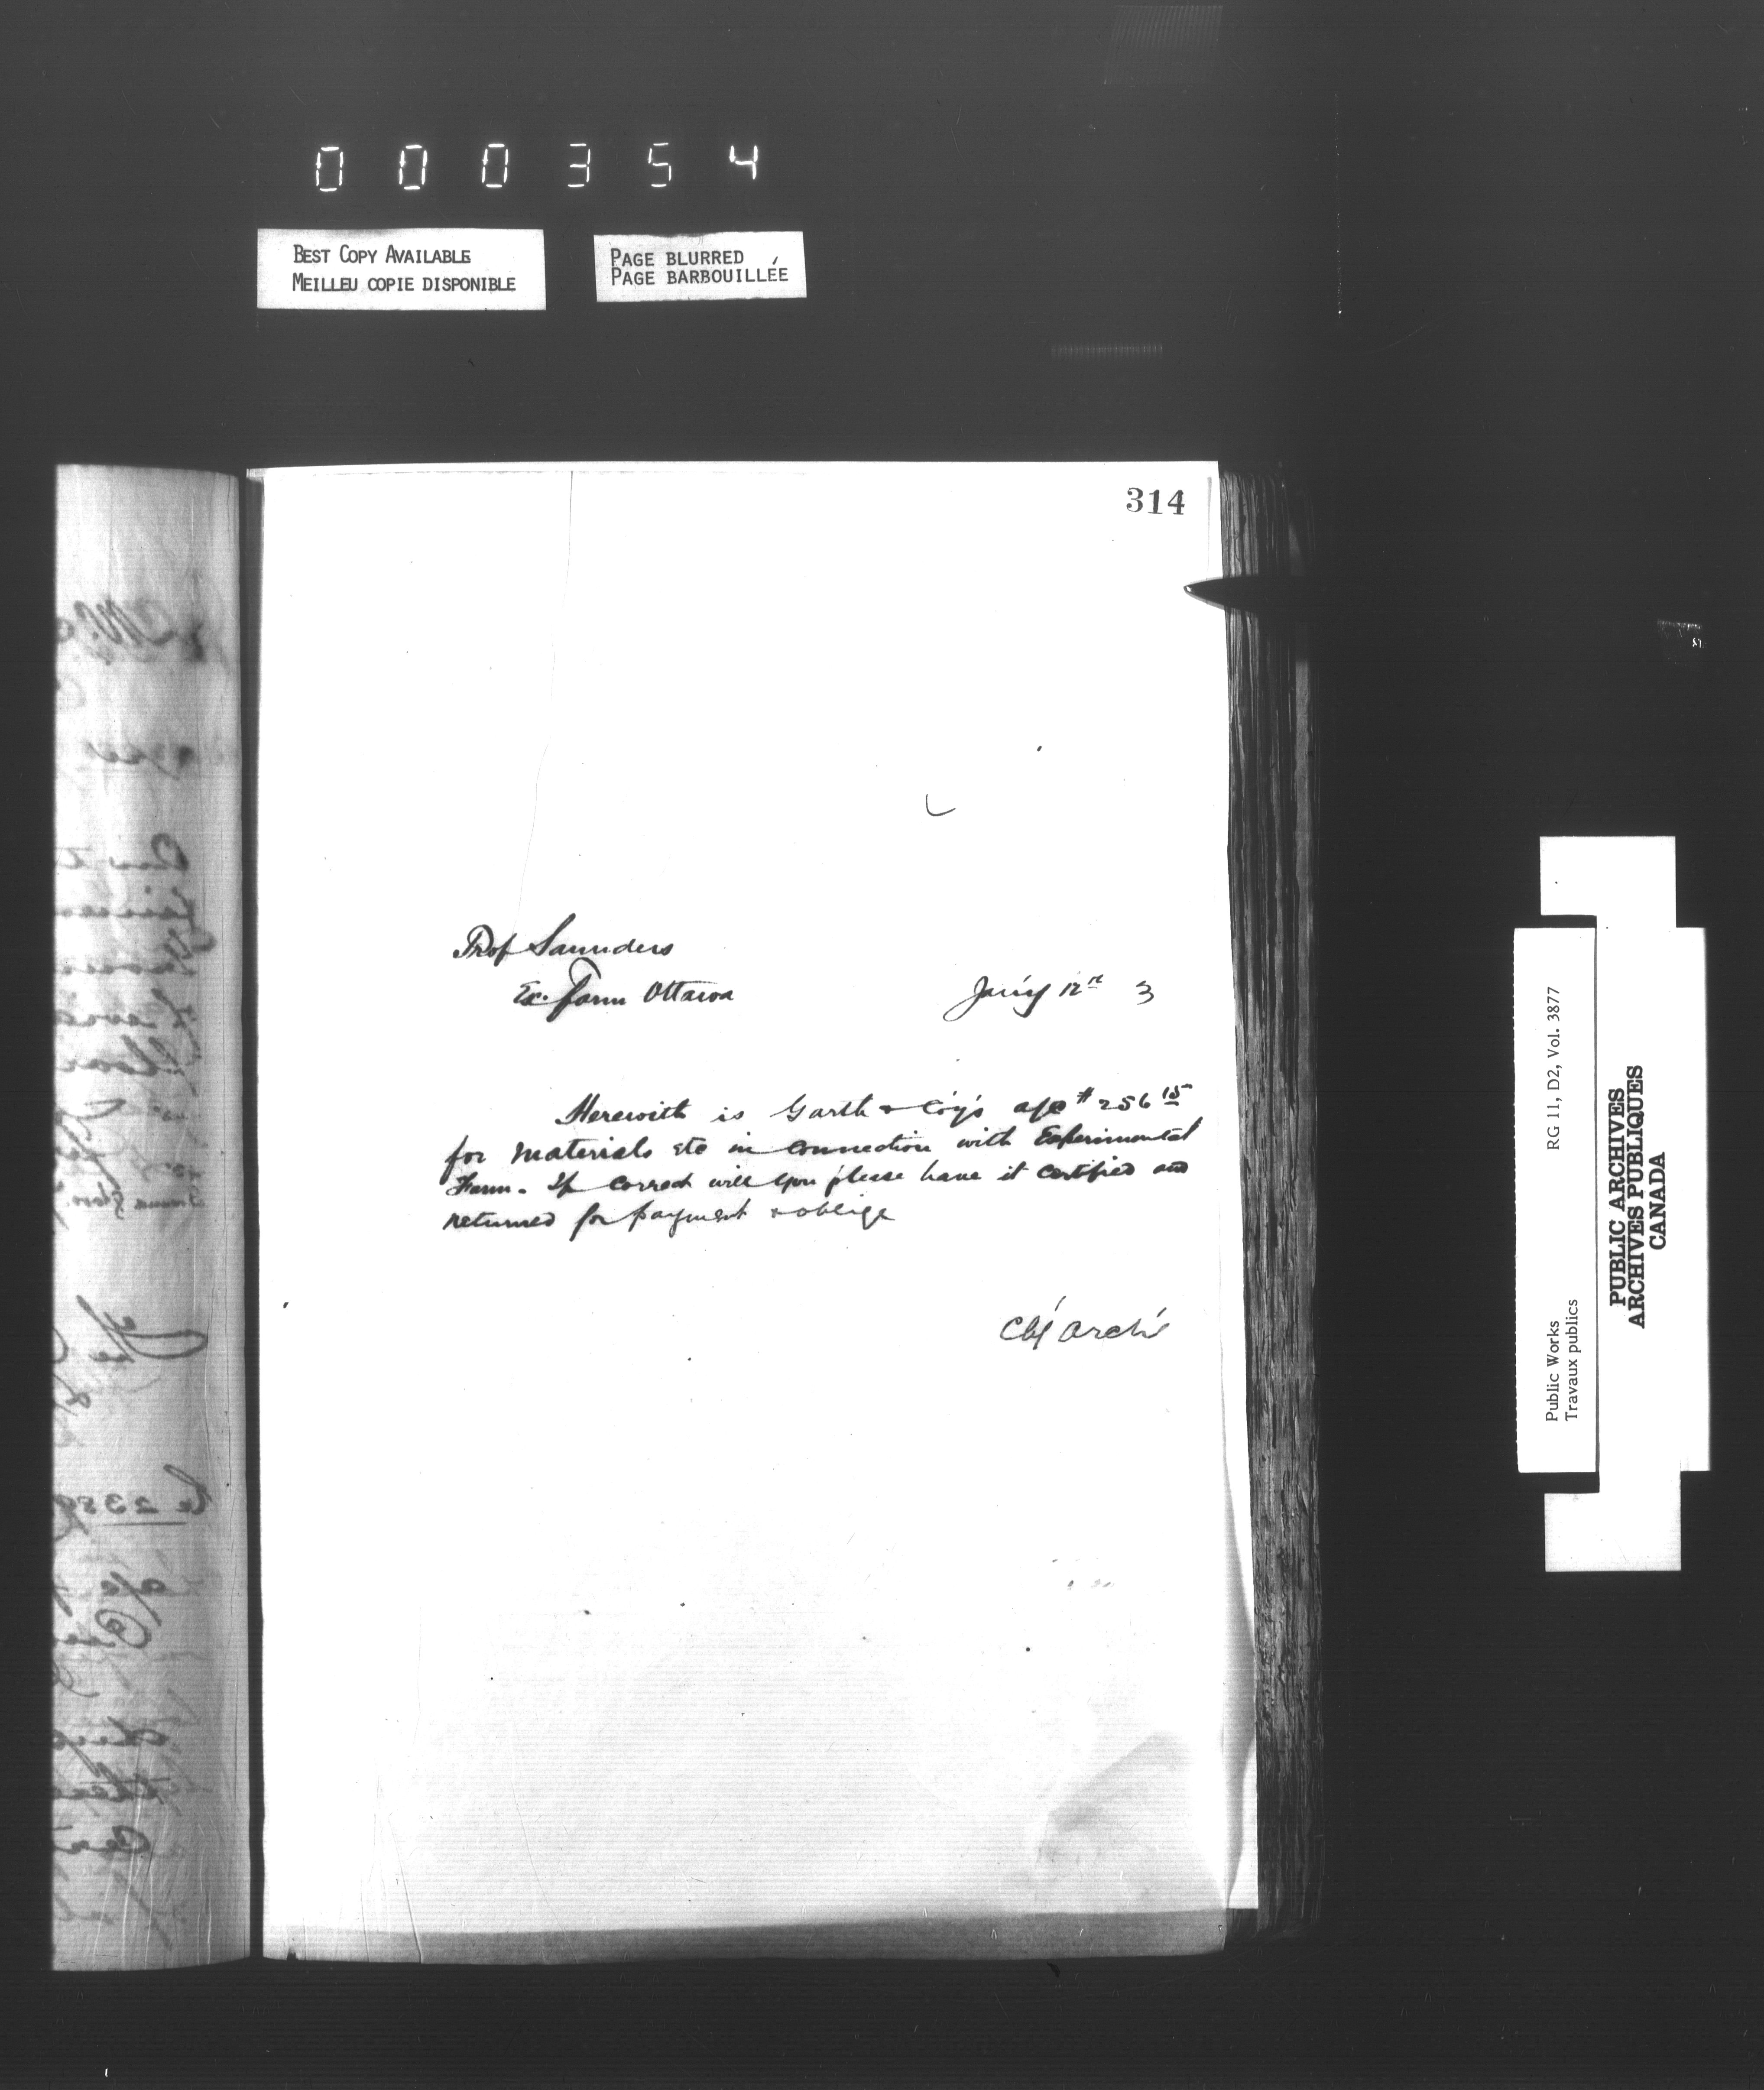 000354
BEST COPY AVAILABLE
MEILLEU COPIE DISPONIBLE
PAGE BLURRED
PAGE BARBOUILLÉE
314
Prof Saunders
Ex. Farm Ottawa
Jan'y 12th 3
Herewith is Garth & Coy's a/c $256 15
for materials etc in connection with Experimental
Farm. If correct will you please have it certified and
returned for payment & oblige
Chf Archt
Public Works
Travaux publics
RG 11, D2, Vol. 3877
PUBLIC ARCHIVES
ARCHIVES PUBLIQUES
CANADA